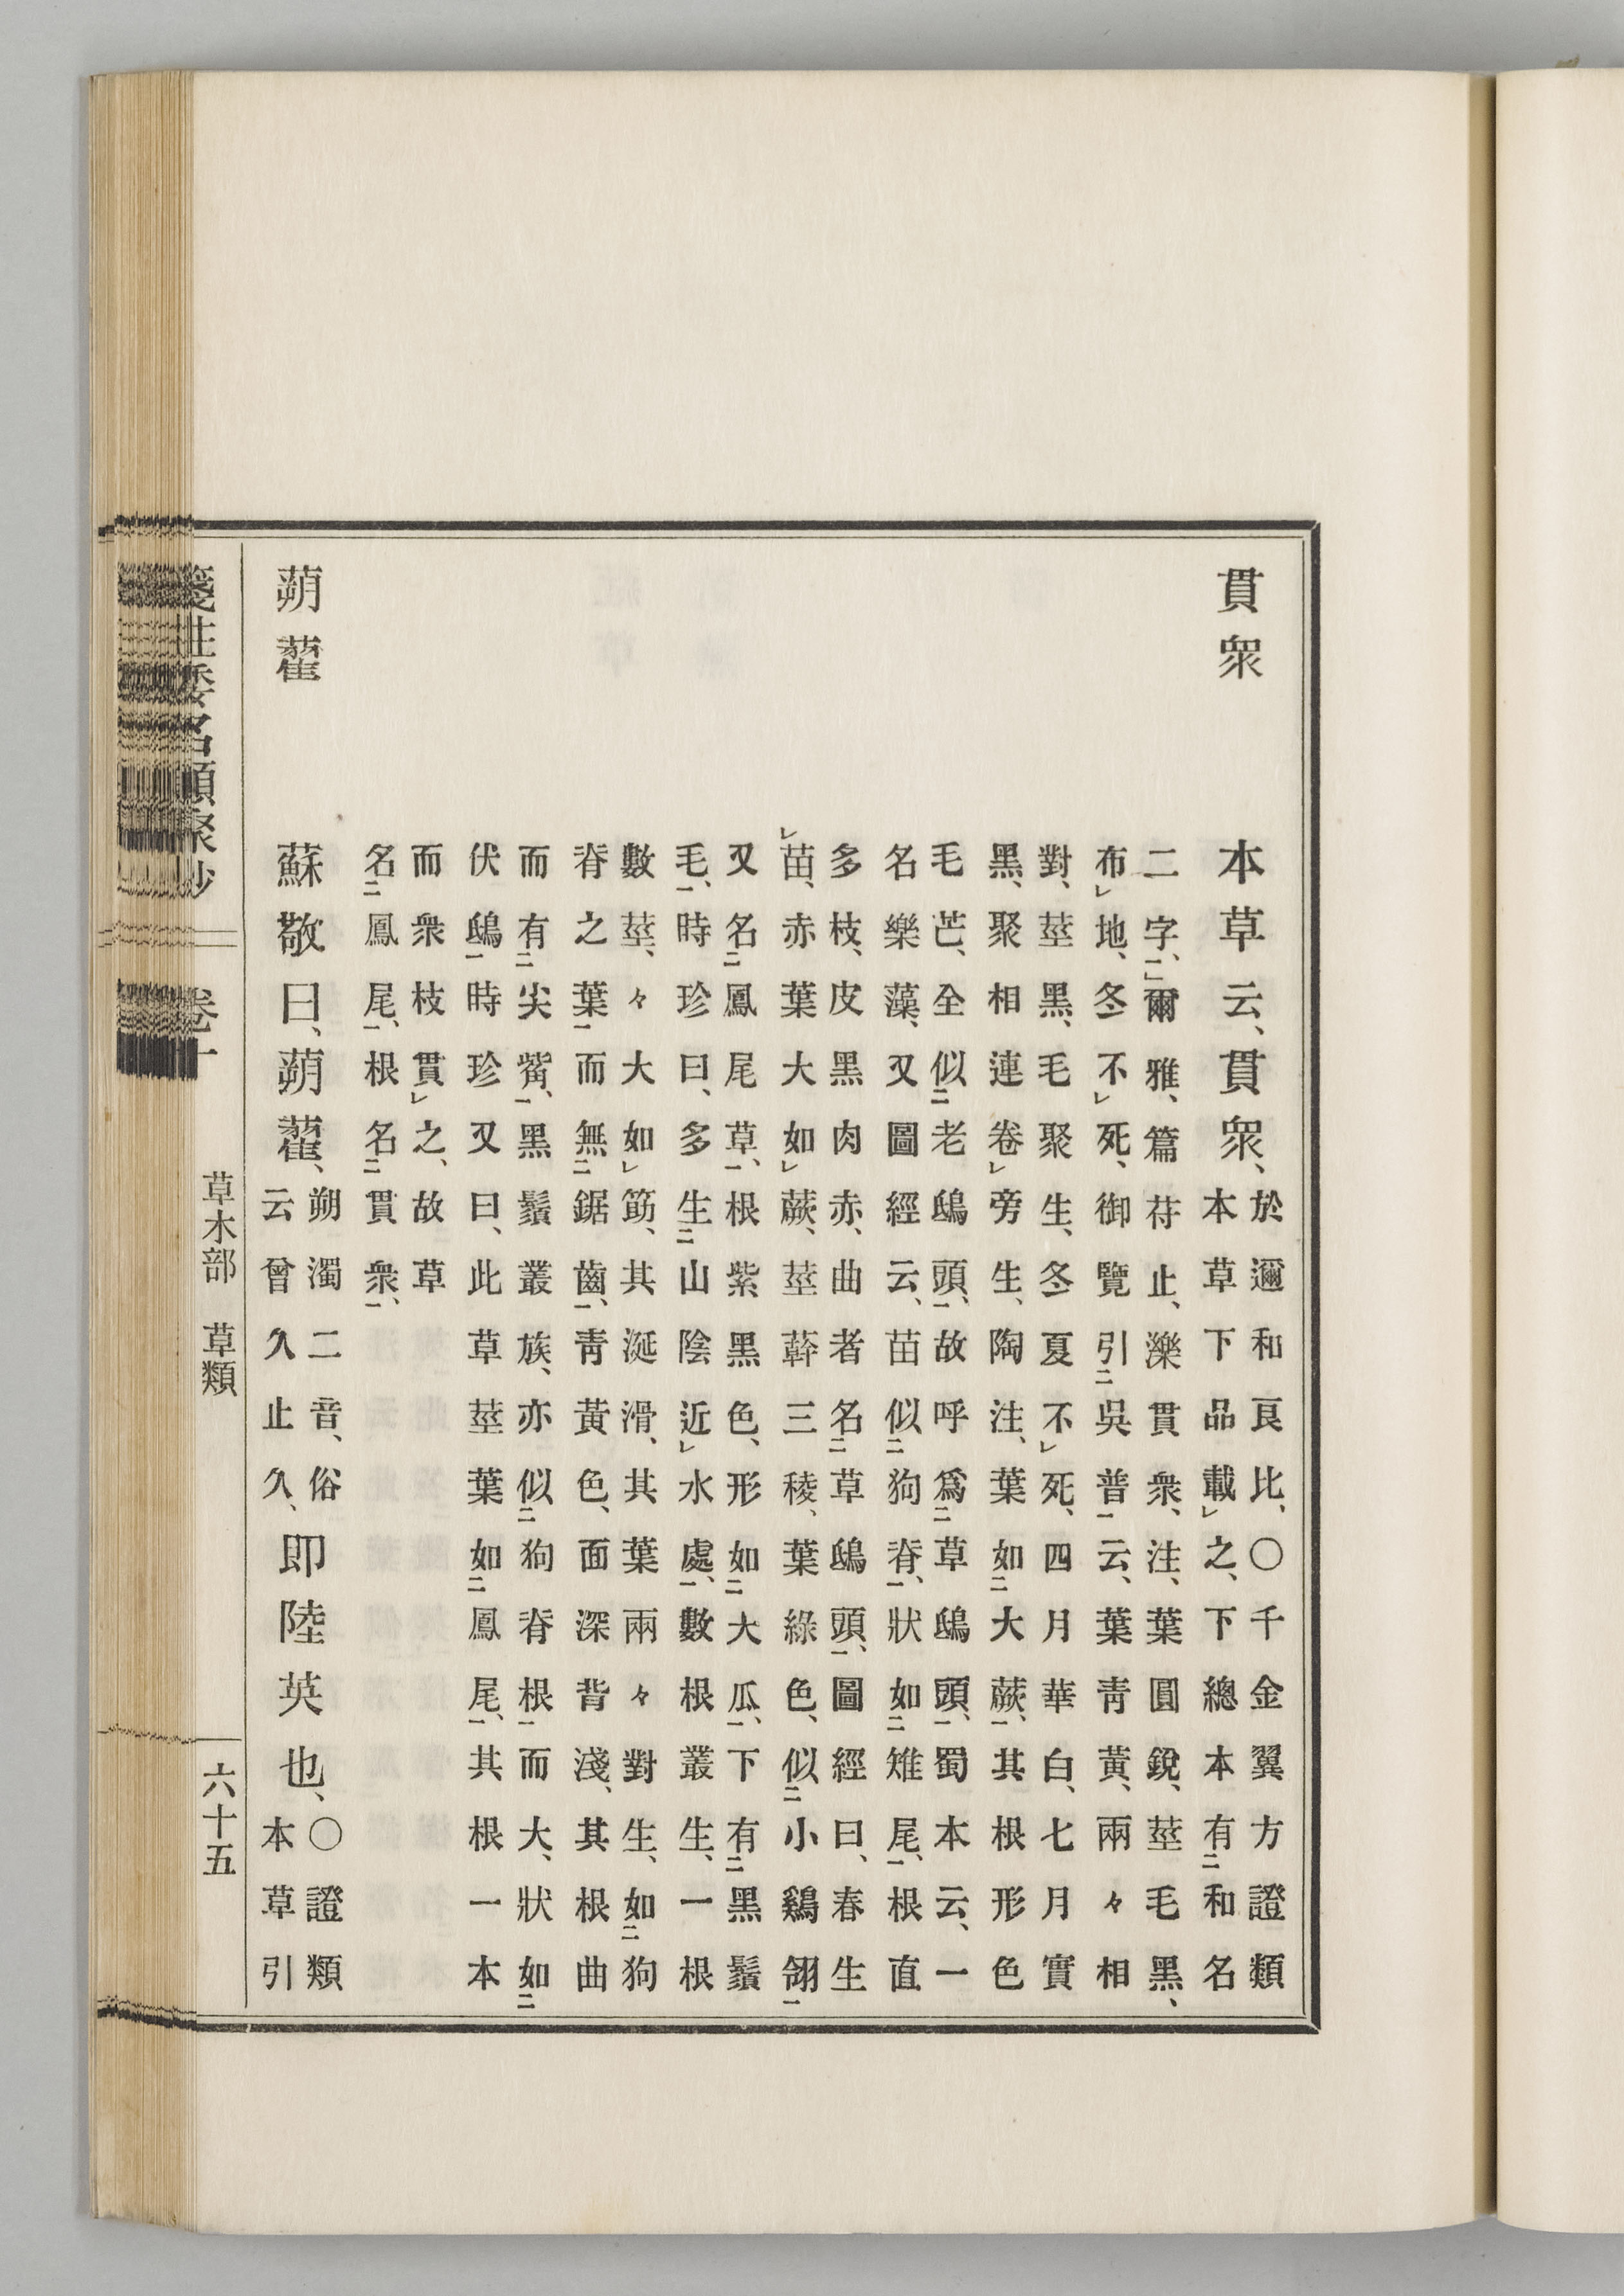 貫衆
本草云、貫衆、
於邇和良比、〇千金翼方證類
本草下品載之、下總本有和名
二字、爾雅、篇苻止、濼貫衆、注、葉圓鋭、莖毛黒、
布地、冬不死、御覽引吳普云、葉青黃、兩々相
對、莖黒、毛聚生、冬夏不死、四月華白、七月實
黒、聚相連卷旁生、陶注、葉如大蕨、其根形色
毛芒、全似老鴟頭、故呼爲草鴟頭、蜀本云、一
名樂藻、又圖經云、苗似狗脊、狀如雉尾、根直
多枝、皮黒肉赤、曲者名草鴟頭、圖經曰、春生
苗、赤葉大如蕨、莖䔅三稜、葉綠色、似小鷄翎
又名鳳尾草、根紫黒色、形如大瓜、下有黒鬚
毛、時珍曰、多生山陰近水處、數根叢生、一根
數莖、々大如筯、其涎滑、其葉兩々對生、如狗
脊之葉而無鋸齒、青黃色、面深背淺、其根曲
而有尖觜、黒鬚叢族、亦似狗脊根而大、狀如
伏鴟時珍又曰、此草莖葉如鳳尾、其根一本
而衆枝貫之、故草
名鳳尾、根名貫衆、
蒴藋
蘇敬曰、蒴藋、
朔濁二音、俗
云曾久止久、
即陸英也、
〇證類
本草引
箋注倭名類聚抄 卷十 草木部 草類 六十五